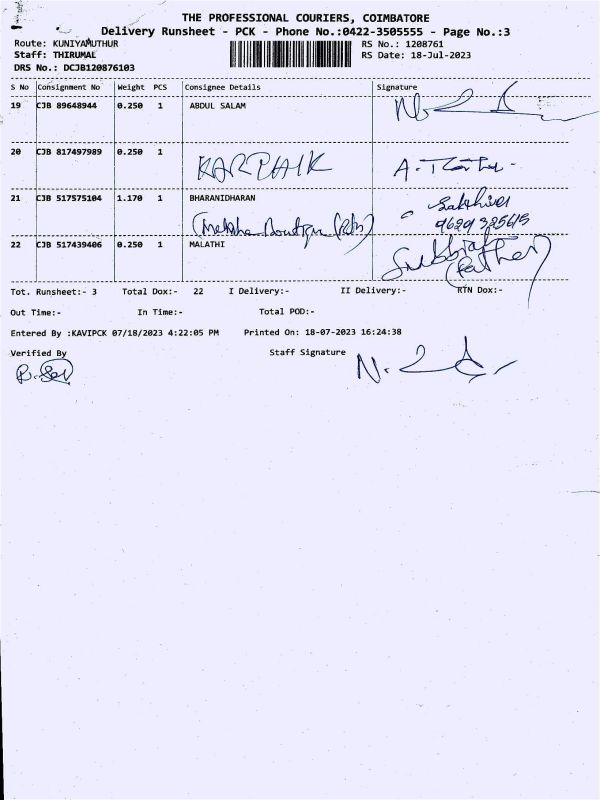 THE PROFESSIONAL COURIERS, COIMBATORE
Delivery Runsheet - PCK - Phone No.:0422-3505555 - Page No.:3
Route: KUNIYAMUTHUR RS No.: 1208761
Staff: THIRUMAL RS Date: 18-Jul-2023
DRS No.: DCJB120876103
S No Consignment No Weight PCS Consignee Details Signature
19 CJB 89648944 0.250 1 ABDUL SALAM
20 CJB 817497989 0.250 1
KARTHIK
21 CJB 517575104 1.170 1 BHARANIDHARAN Sakthivel
9629325615
22 CJB 517439406 0.250 1 MALATHI
(father)
Tot. Runsheet:- 3 Total Dox:- 22 I Delivery:- II Delivery:- RTN Dox:-
Out Time:- In Time:- Total POD:-
Entered By :KAVIPCK 07/18/2023 4:22:05 PM Printed On: 18-07-2023 16:24:38
Verified By Staff Signature